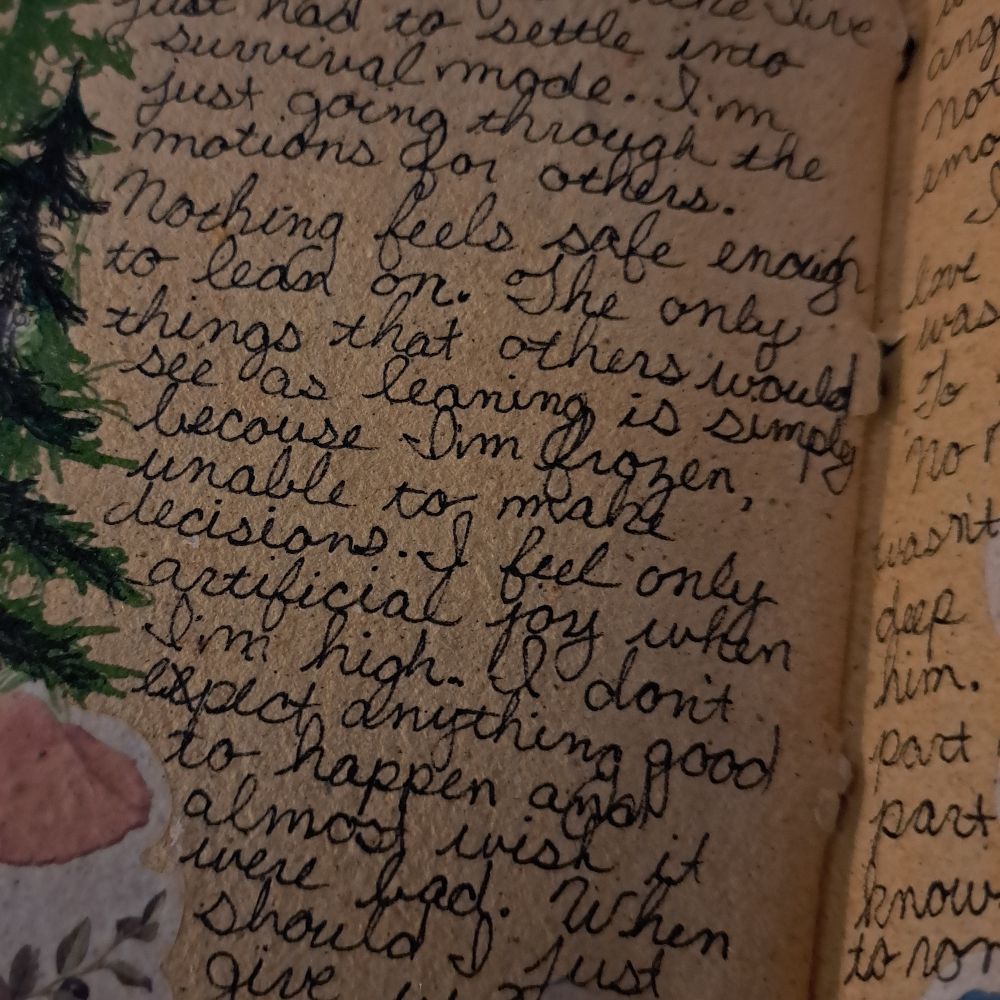 just had to settle into
survival mode. I'm
just going through the
motions for others.
Nothing feels safe enough
to lean on. The only
things that others would
see as leaning is simply
because I'm frozen,
unable to make
decisions. I feel only
artificial joy when
I'm high. I don't
expect anything good
to happen and
almost wish it
were bad. When
should I just
give
not
love
was
To
no
wasn't
deep
him.
part
part
know
to